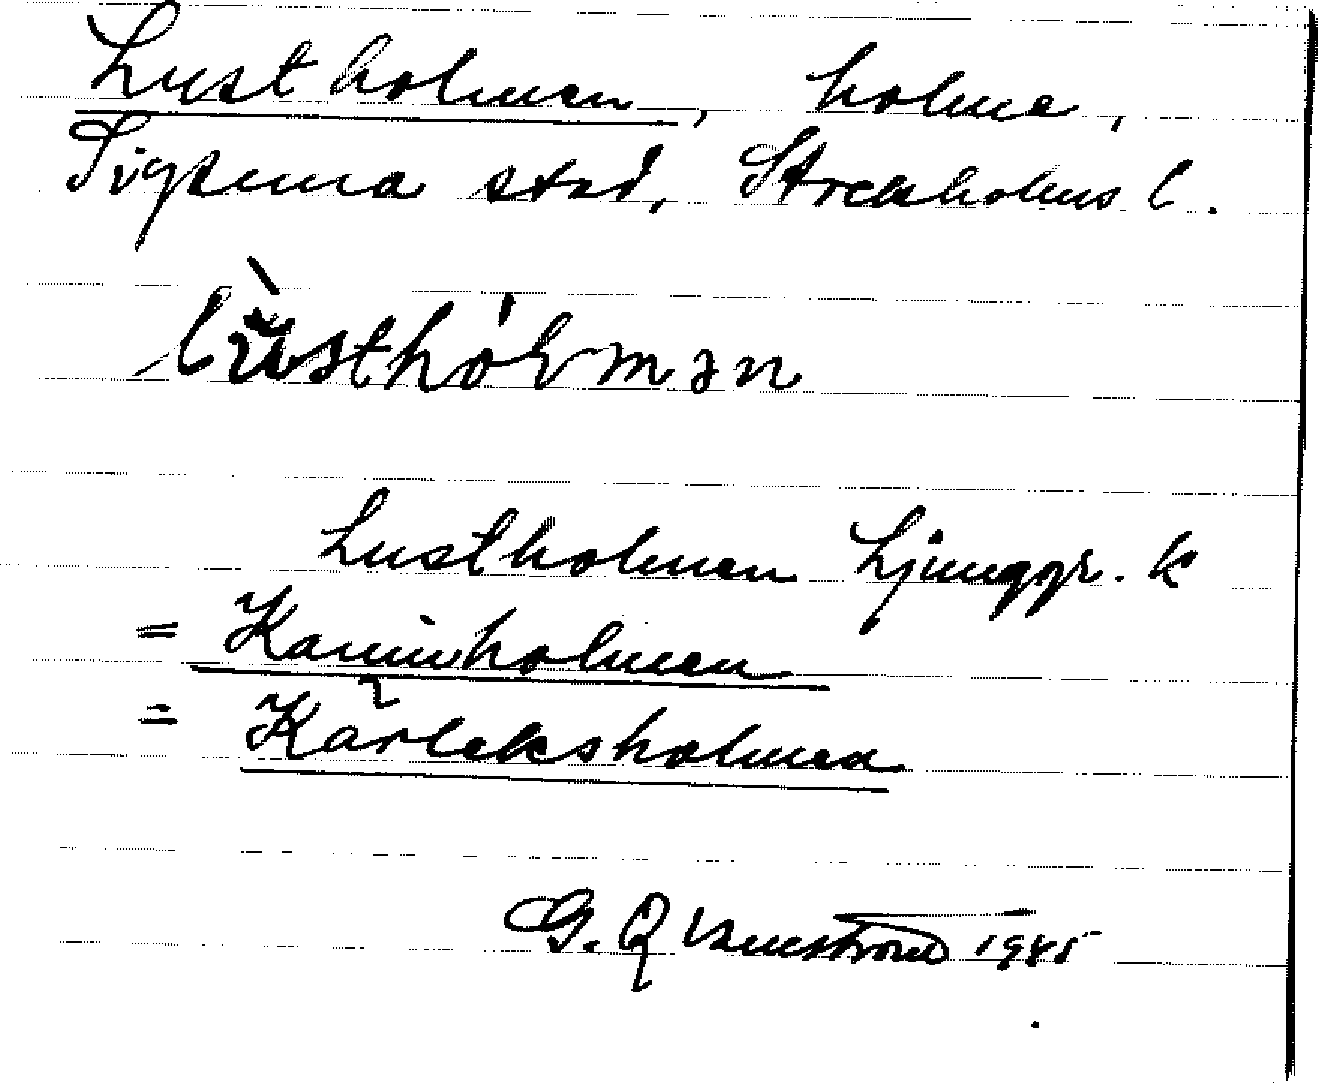 Lustholmen, holme,
Sigtuna stad, Stockholms l.
Lustholmen Ljunggr. k
= Kaninholmen
= Kärleksholmen
G. Qvarnström 1945